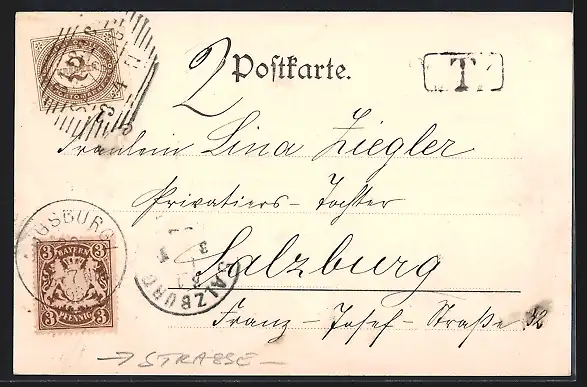 2 Postkarte.
T
Fräulein Lina Ziegler
Privatiers-Tochter
AUGSBURG
3 BAYERN 3
3 PFENNIG 3
SALZBURG
Salzburg
Franz-Josef-Straße 32
→ STRASSE –